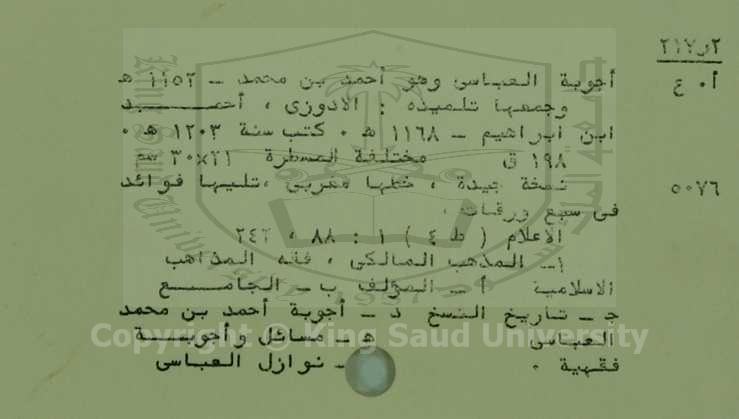 ٢١٧٫٢
أ٠ع
أجوبة العباسى وهو أحمد بن محمد ــ ١١٥٢ هـ
وجمعها تلميذه : الادوزى ، أحمــــــد
ابن ابراهيم ــ ١١٦٨ هـ ٠ كتب سنة ١٢٠٣ هـ ٠
١٩٨ ق مختلفة المسطرة ٢١×٣٠ سم
٥٠٧٦
نسخة جيدة ، خطها مغربى ،تليها فوائد
فى سبع ورقات ٠
الاعلام ( ط ٤ ) ١ : ٨٨ ، ٢٤٢
١ــ المذهب المالكى ، فقه المذاهب
الاسلامية أ ــ المؤلف ب ــ الجامــــع
جـ ــ تاريخ النسخ د ــ أجوبة أحمد بن محمد
العباسى هـ ــ مسائل وأجوبــــة
فقهية ٠ ــ نوازل العباسى
Copyright © King Saud University